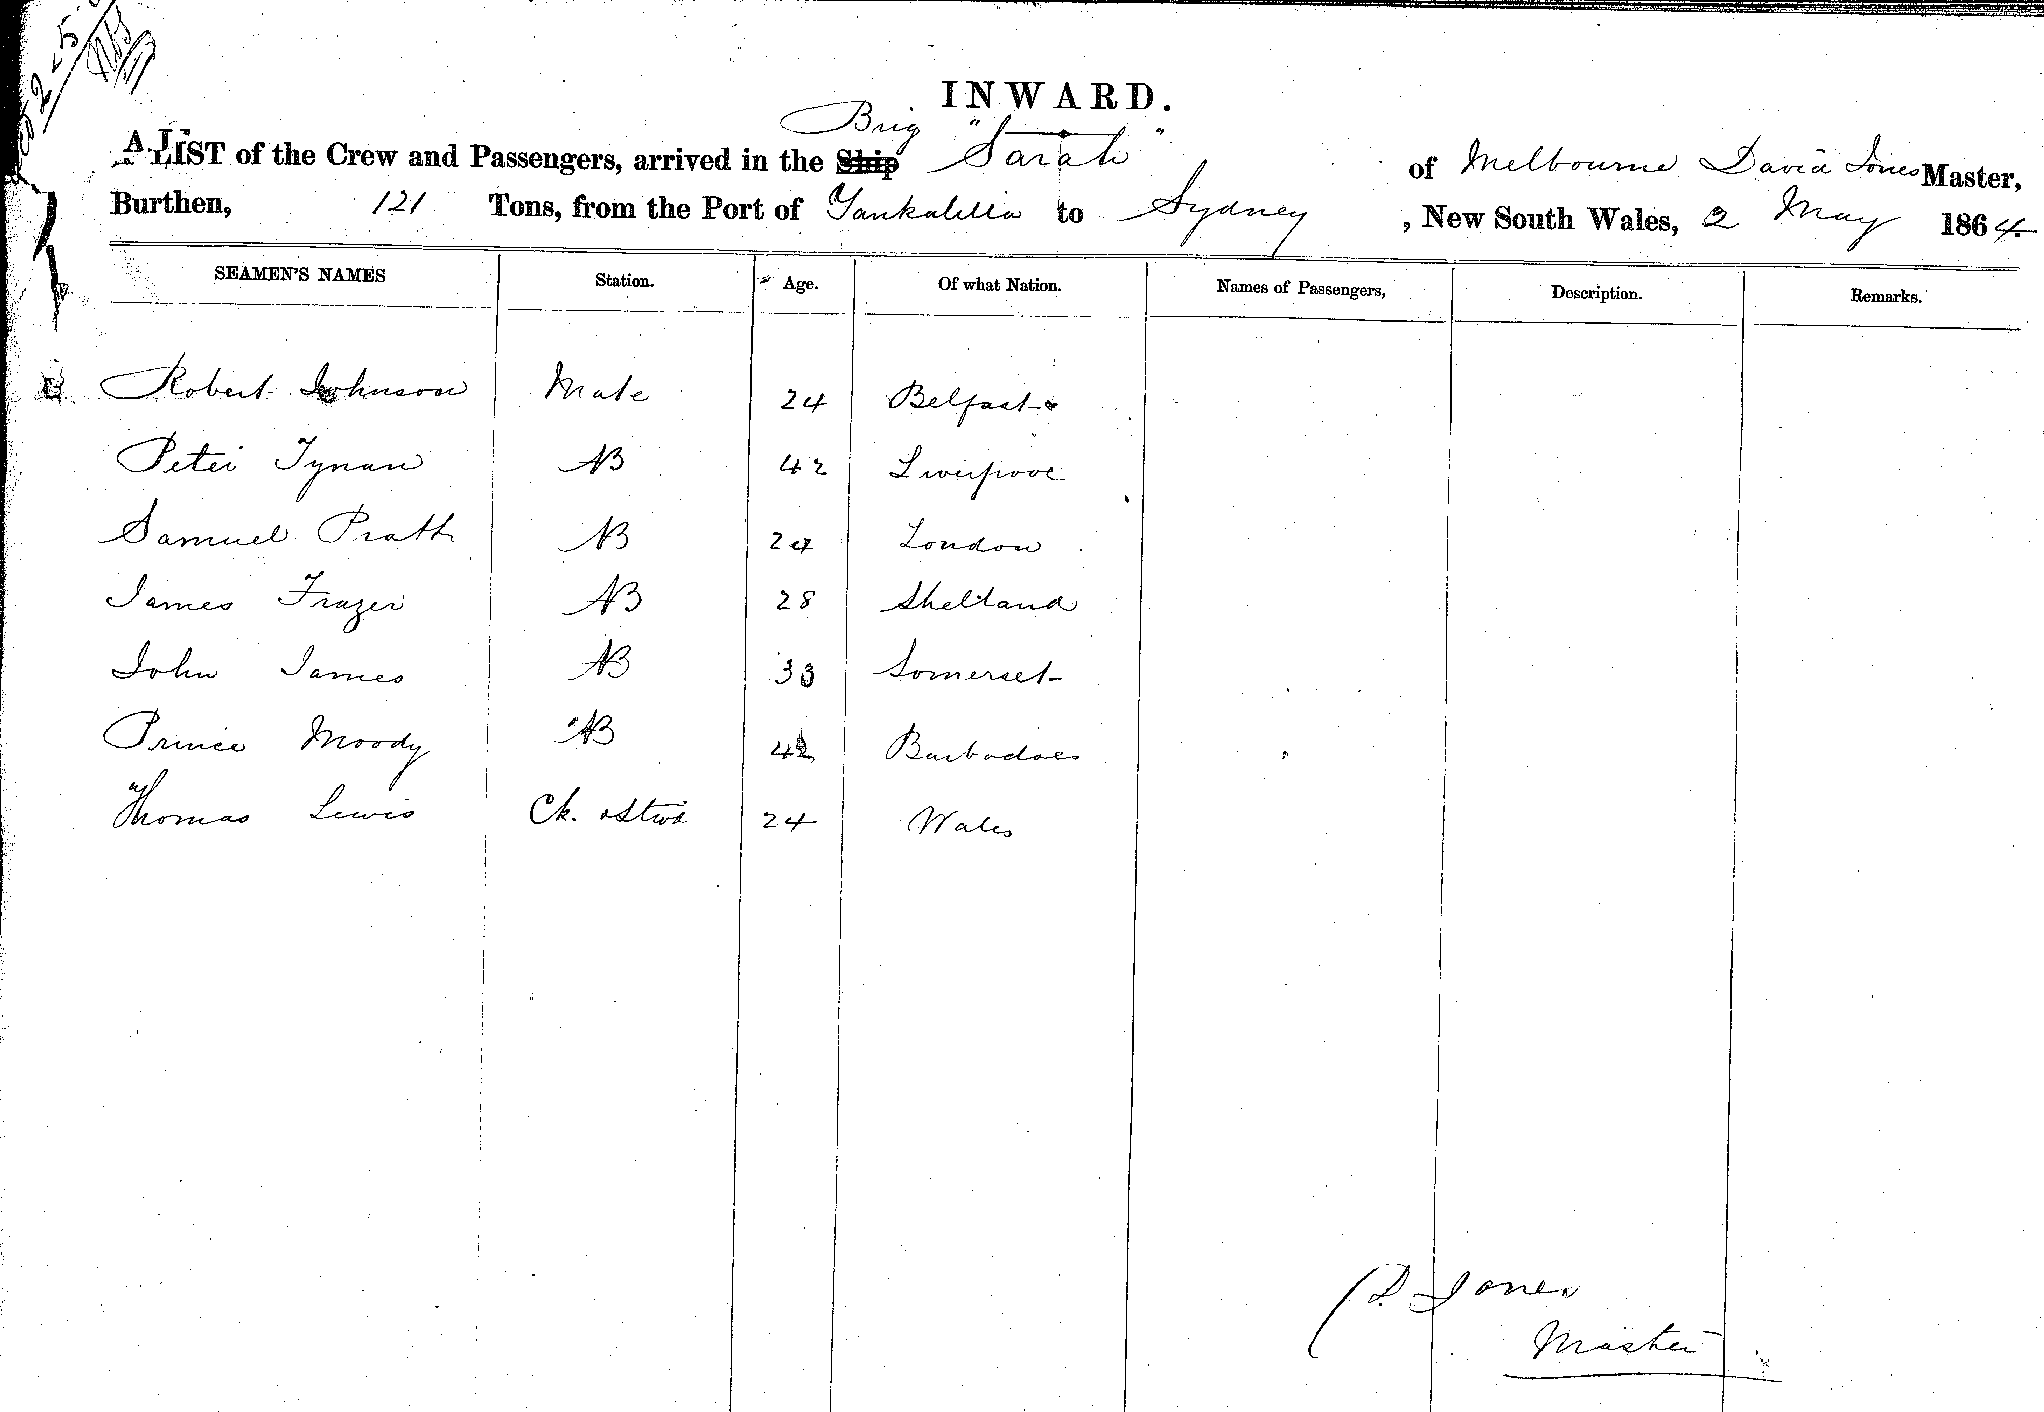 INWARD.
A LIST of the Crew and Passengers, arrived in the Ship Brig "Sarah" of Melbourne David Jones Master,
Burthen, 121 Tons, from the Port of Yankalilla to Sydney, New South Wales, 2 May 1864.
SEAMEN'S NAMES Station. Age. Of what Nation. Names of Passengers, Description. Remarks.
Robert Johnson Mate 24 Belfast
Peter Tynan AB 42 Liverpool
Samuel Pratt AB 24 London
James Frazer AB 28 Shetland
John James AB 33 Somerset
Prince Moody AB 42 Barbadoes
Thomas Lewis Ck. & Stwd 24 Wales
D. Jones
Master